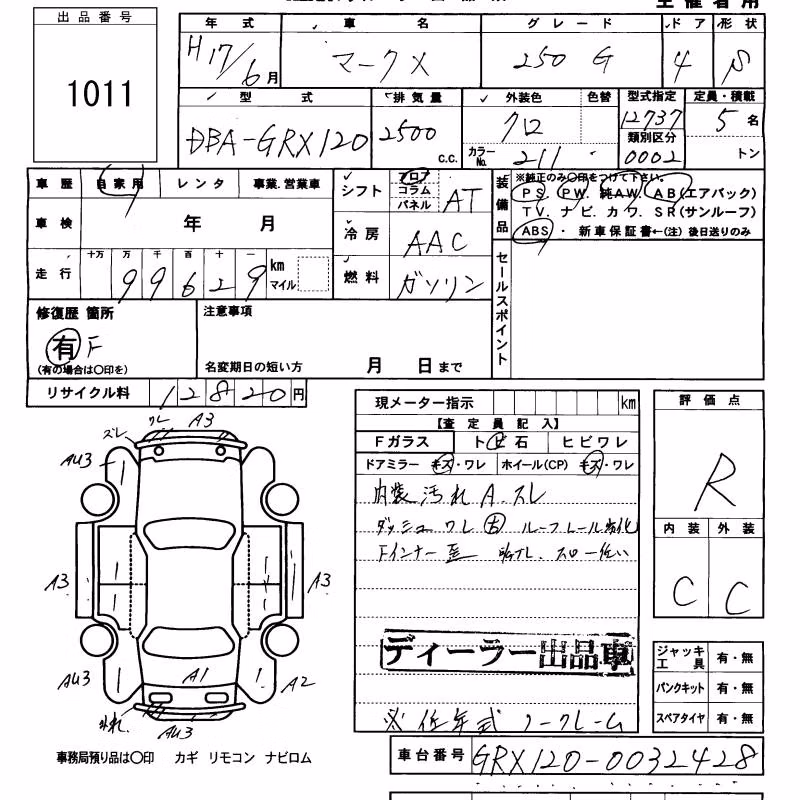 出品番号
1011
年式 車名 グレード ドア 形状
H17/6月 マークX 250 G 4 S
型式 排気量 外装色 色替 型式指定 定員・積載
DBA-GRX120 2500 c.c. クロ 12737 5名
カラーNo. 211 類別区分 0002 トン
車歴 自家用 レンタ 事業.営業車
シフト フロア コラム パネル AT
装備品 ※純正のみ〇印をつけて下さい。
PS. PW. 純AW. AB(エアバック)
TV. ナビ. カワ. SR(サンルーフ)
ABS・ 新車保証書←(注) 後日送りのみ
車検 年 月
冷房 AAC
走行 十万 万 千 百 十 一
99629 km マイル
燃料 ガソリン
セールスポイント
修復歴 箇所
有 F
(有の場合は〇印を)
注意事項
名変期日の短い方 月 日まで
リサイクル料 12820円
現メーター指示 km
【査定員記入】
Fガラス トビ石 ヒビワレ
ドアミラー キズ・ワレ ホイール(CP) キズ・ワレ
内装 汚れ A. スレ
ダッシュ ワレ 有 ルーフレール劣化
ディーラー出品車
ノークレーム
評価点
R
内装 外装
C C
ジャッキ工具 有・無
パンクキット 有・無
スペアタイヤ 有・無
ズレ ワレ A3
AU3
A3 A3
AU3 A1 A2
AU3
事務局預り品は〇印 カギ リモコン ナビロム
車台番号 GRX120-0032428